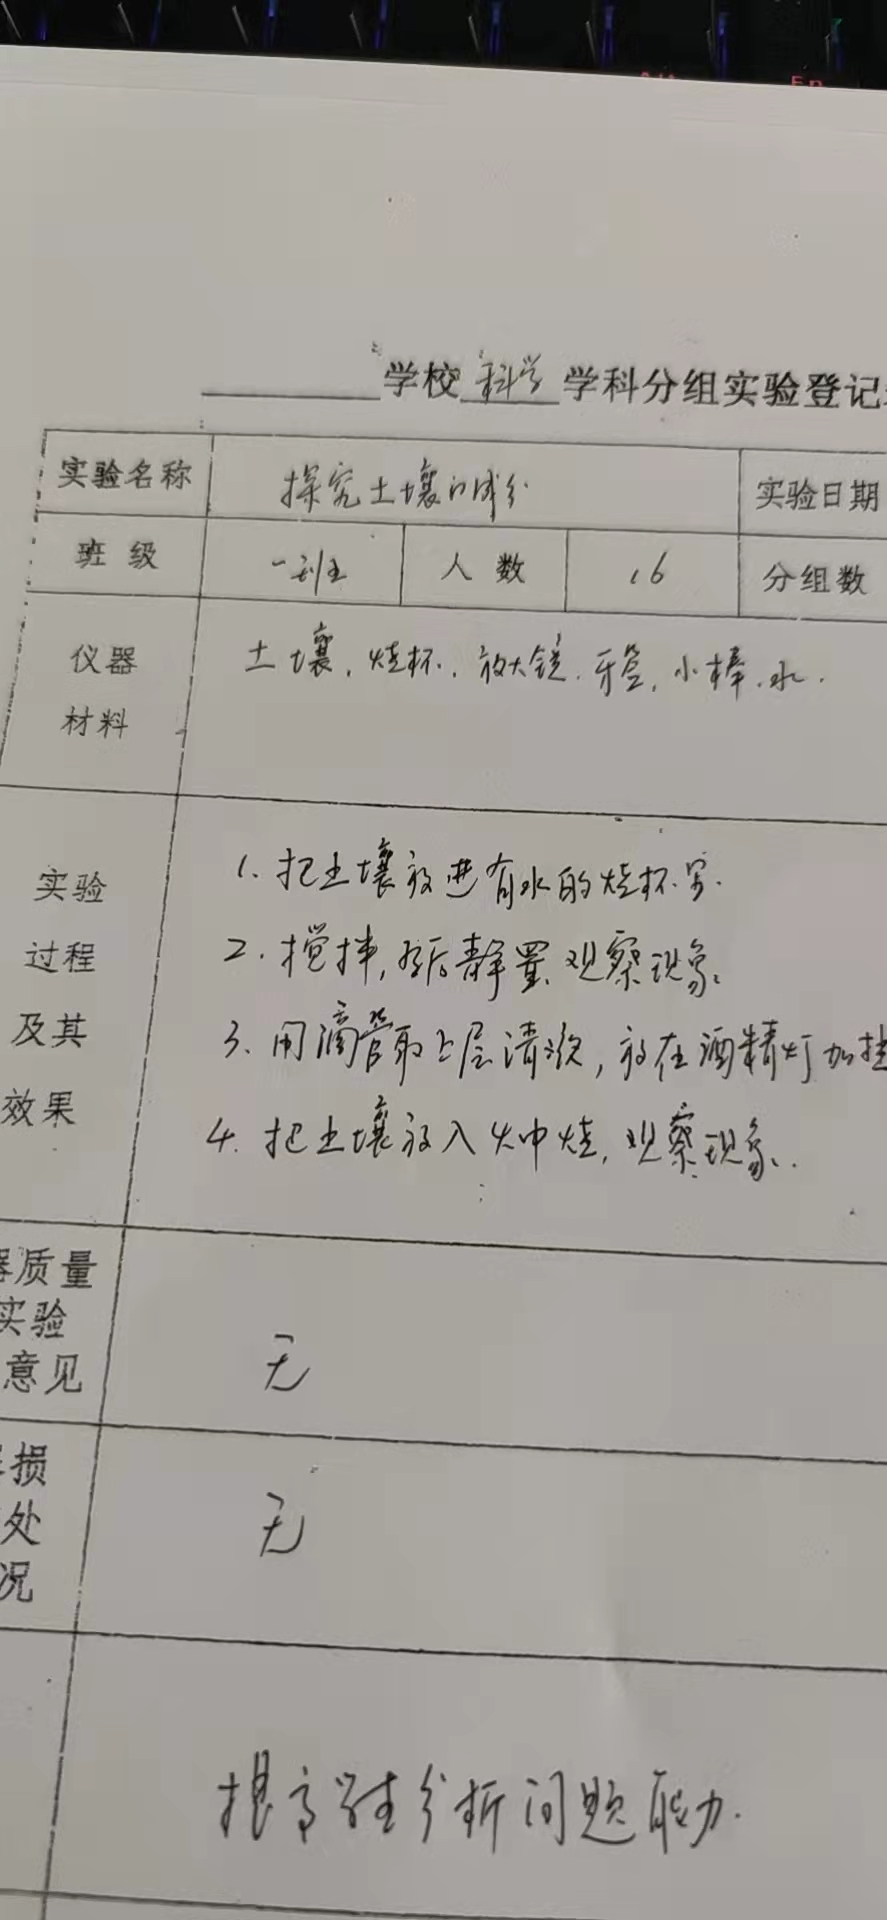 学校 科学 学科分组实验登记
实验名称 探究土壤的成分 实验日期
班 级 一班 人 数 16 分组数
仪器
材料
土壤、烧杯、放大镜、牙签、小棒、水.
实验
过程
及其
效果
1. 把土壤放进有水的烧杯里.
2. 搅拌,然后静置、观察现象
3. 用滴管取上层清液,放在酒精灯加
4. 把土壤放入火中烧,观察现象.
质量
实验
意见
无
损
处
况
无
提高学生分析问题能力.